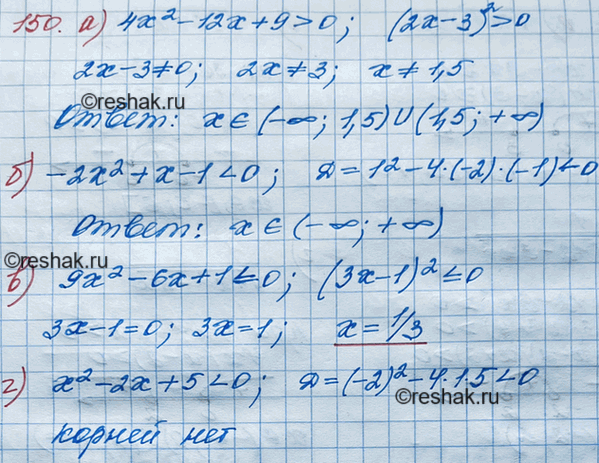 150. а) 4x² - 12x + 9 > 0; (2x - 3)² > 0
2x - 3 ≠ 0; 2x ≠ 3; x ≠ 1,5
©reshak.ru
Ответ: x ∈ (-∞; 1,5) ∪ (1,5; +∞)
б) -2x² + x - 1 < 0; Д = 1² - 4·(-2)·(-1) < 0
Ответ: x ∈ (-∞; +∞)
©reshak.ru
в) 9x² - 6x + 1 ≤ 0; (3x - 1)² ≤ 0
3x - 1 = 0; 3x = 1; x = 1/3
г) x² - 2x + 5 < 0; Д = (-2)² - 4·1·5 < 0
©reshak.ru
корней нет